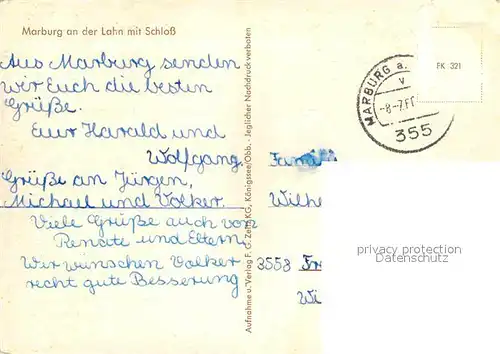 Marburg an der Lahn mit Schloß
Aus Marburg senden
wir Euch die besten
Grüße.
Eure Harald und
Wolfgang.
Grüße an Jürgen,
Michael und Volker.
Viele Grüße auch von
Renate und Eltern
Wir wünschen Volker
recht gute Besserung
Aufnahme u. Verlag F. G. Zeitz KG, Königssee/Obb. - Jeglicher Nachdruck verboten
MARBURG a.
v
-8-7.
355
FK 321
Fami
Wilhe
privacy protection
Datenschutz
3553 Fr
Wi